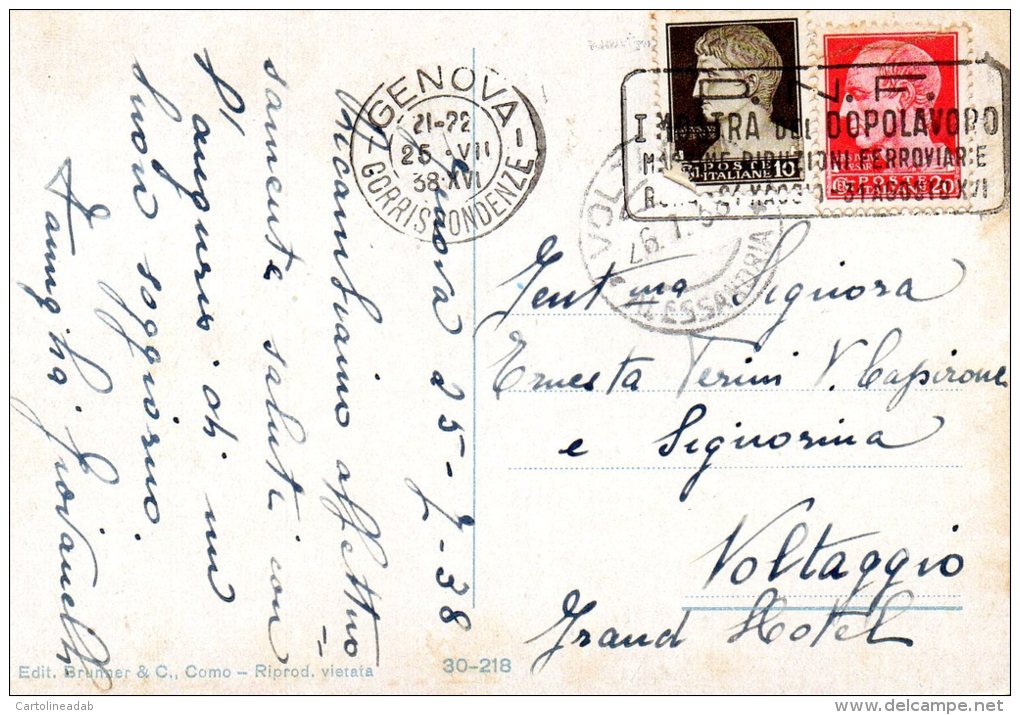 GENOVA
21-22
25 · VII
38 XVI
CORRISPONDENZE
U. N. F.
I MOSTRA DEL DOPOLAVORO
MASSIME RIDUZIONI FERROVIARIE
24 MAGGIO - 31 AGOSTO XVI
POSTE
ITALIANE 10
POSTE 20
VOLTAGGIO
26.7.38
ALESSANDRIA
Genova 25-7-38
Ricambiamo affettuo
samente saluti con
l'augurio di un
buon soggiorno.
Famiglia
Gent.ma Signora
Ernesta Terini V. Capirone
e Signorina
Voltaggio
Grand Hotel
Edit. Brunner & C., Como – Riprod. vietata
30-218
Cartolineadab
www.delcampe.net